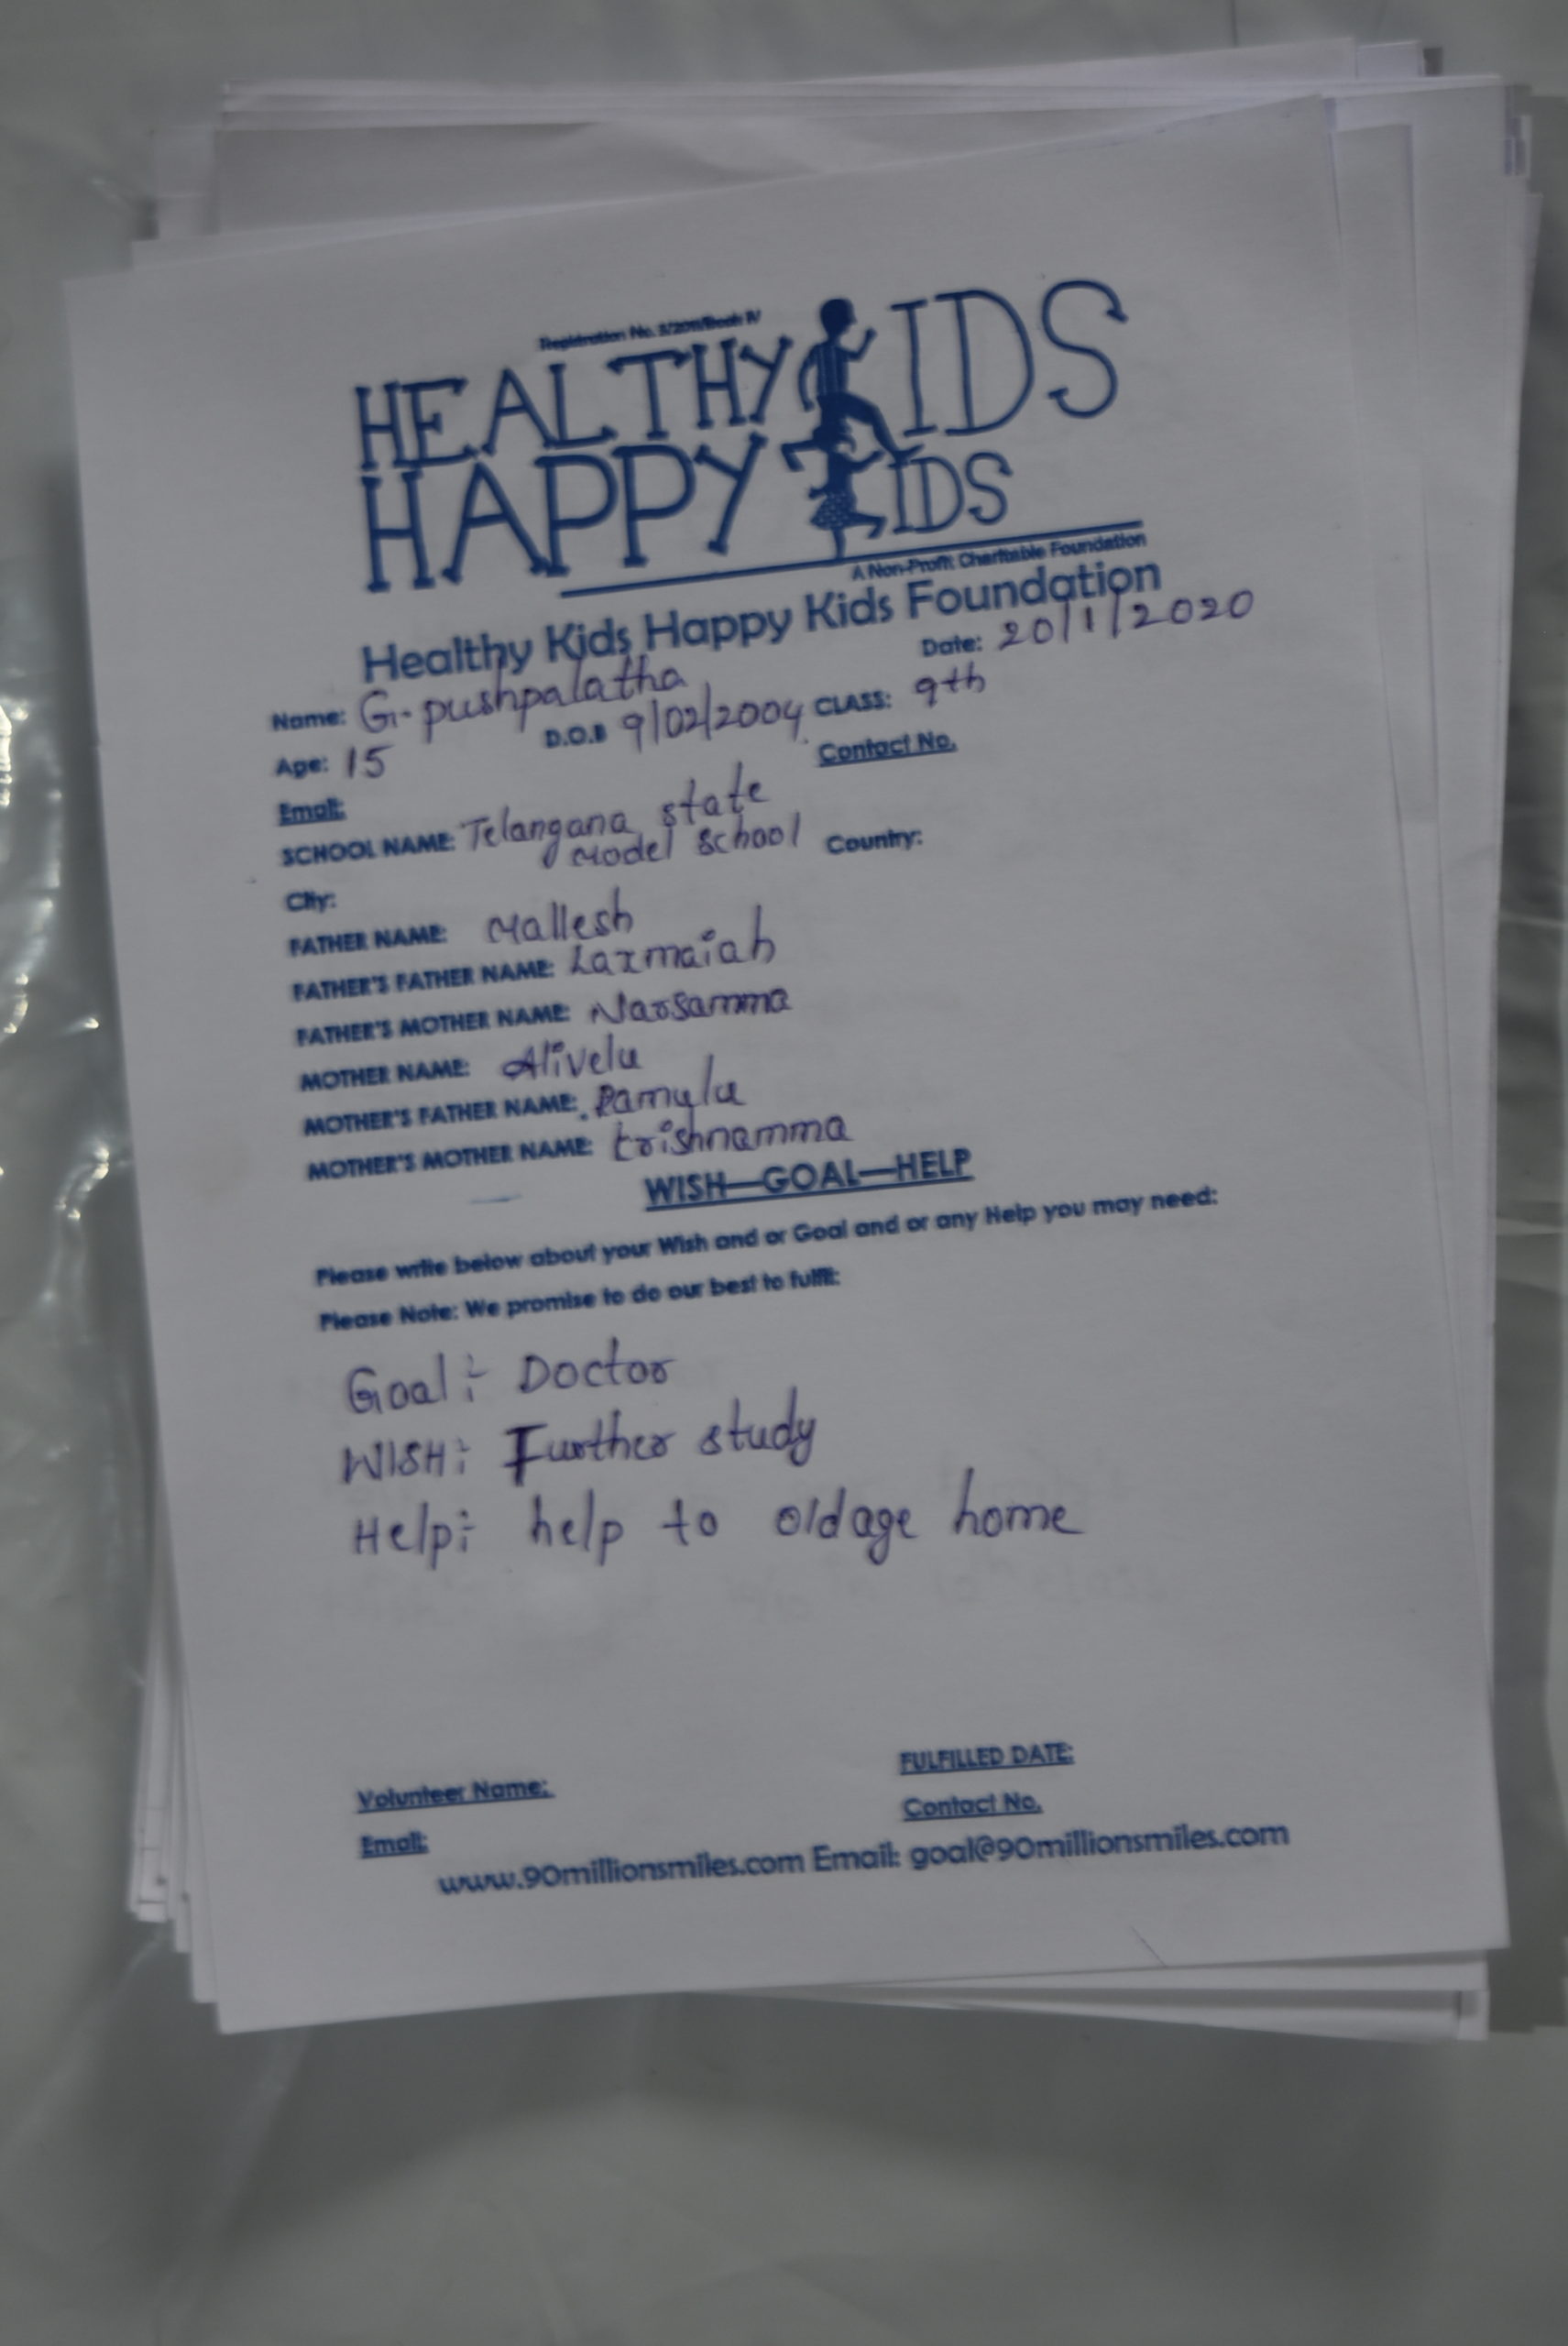 HEALTHY KIDS
HAPPY KIDS
A Non-Profit Charitable Foundation
Healthy Kids Happy Kids Foundation
Date: 20/1/2020
Name: G. pushpalatha
D.O.B 9/02/2004 CLASS: 9th
Age: 15
Contact No.
Email:
SCHOOL NAME: Telangana state
Model School Country:
City:
FATHER NAME: Mallesh
FATHER'S FATHER NAME: Laxmaiah
FATHER'S MOTHER NAME: Narsamma
MOTHER NAME: Alivelu
MOTHER'S FATHER NAME: Ramulu
MOTHER'S MOTHER NAME: krishnamma
WISH—GOAL—HELP
Please write below about your Wish and or Goal and or any Help you may need:
Please Note: We promise to do our best to fulfil:
Goal:- Doctor
WISH:- Further study
Help:- help to oldage home
FULFILLED DATE:
Volunteer Name:
Contact No.
Email:
www.90millionsmiles.com Email: goal@90millionsmiles.com